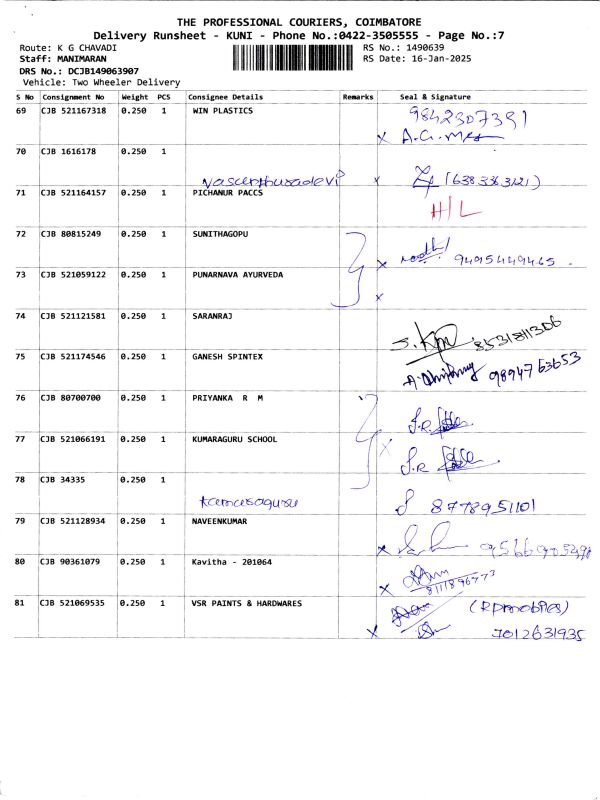 THE PROFESSIONAL COURIERS, COIMBATORE
Delivery Runsheet - KUNI - Phone No.:0422-3505555 - Page No.:7
Route: K G CHAVADI RS No.: 1490639
Staff: MANIMARAN RS Date: 16-Jan-2025
DRS No.: DCJB149063907
Vehicle: Two Wheeler Delivery
S No Consignment No Weight PCS Consignee Details Remarks Seal & Signature
69 CJB 521167318 0.250 1 WIN PLASTICS 9842307391
x
70 CJB 1616178 0.250 1
Vasanthuradevi x (6383363121)
71 CJB 521164157 0.250 1 PICHANUR PACCS
H/L
72 CJB 80815249 0.250 1 SUNITHAGOPU
x 9495449465
73 CJB 521059122 0.250 1 PUNARNAVA AYURVEDA
x
74 CJB 521121581 0.250 1 SARANRAJ
8531811306
75 CJB 521174546 0.250 1 GANESH SPINTEX
9894763653
76 CJB 80700700 0.250 1 PRIYANKA R M
77 CJB 521066191 0.250 1 KUMARAGURU SCHOOL
x
78 CJB 34335 0.250 1
kumaraguru 8778951101
79 CJB 521128934 0.250 1 NAVEENKUMAR
x
80 CJB 90361079 0.250 1 Kavitha - 201064
x 8111896773
81 CJB 521069535 0.250 1 VSR PAINTS & HARDWARES
x 7012631935